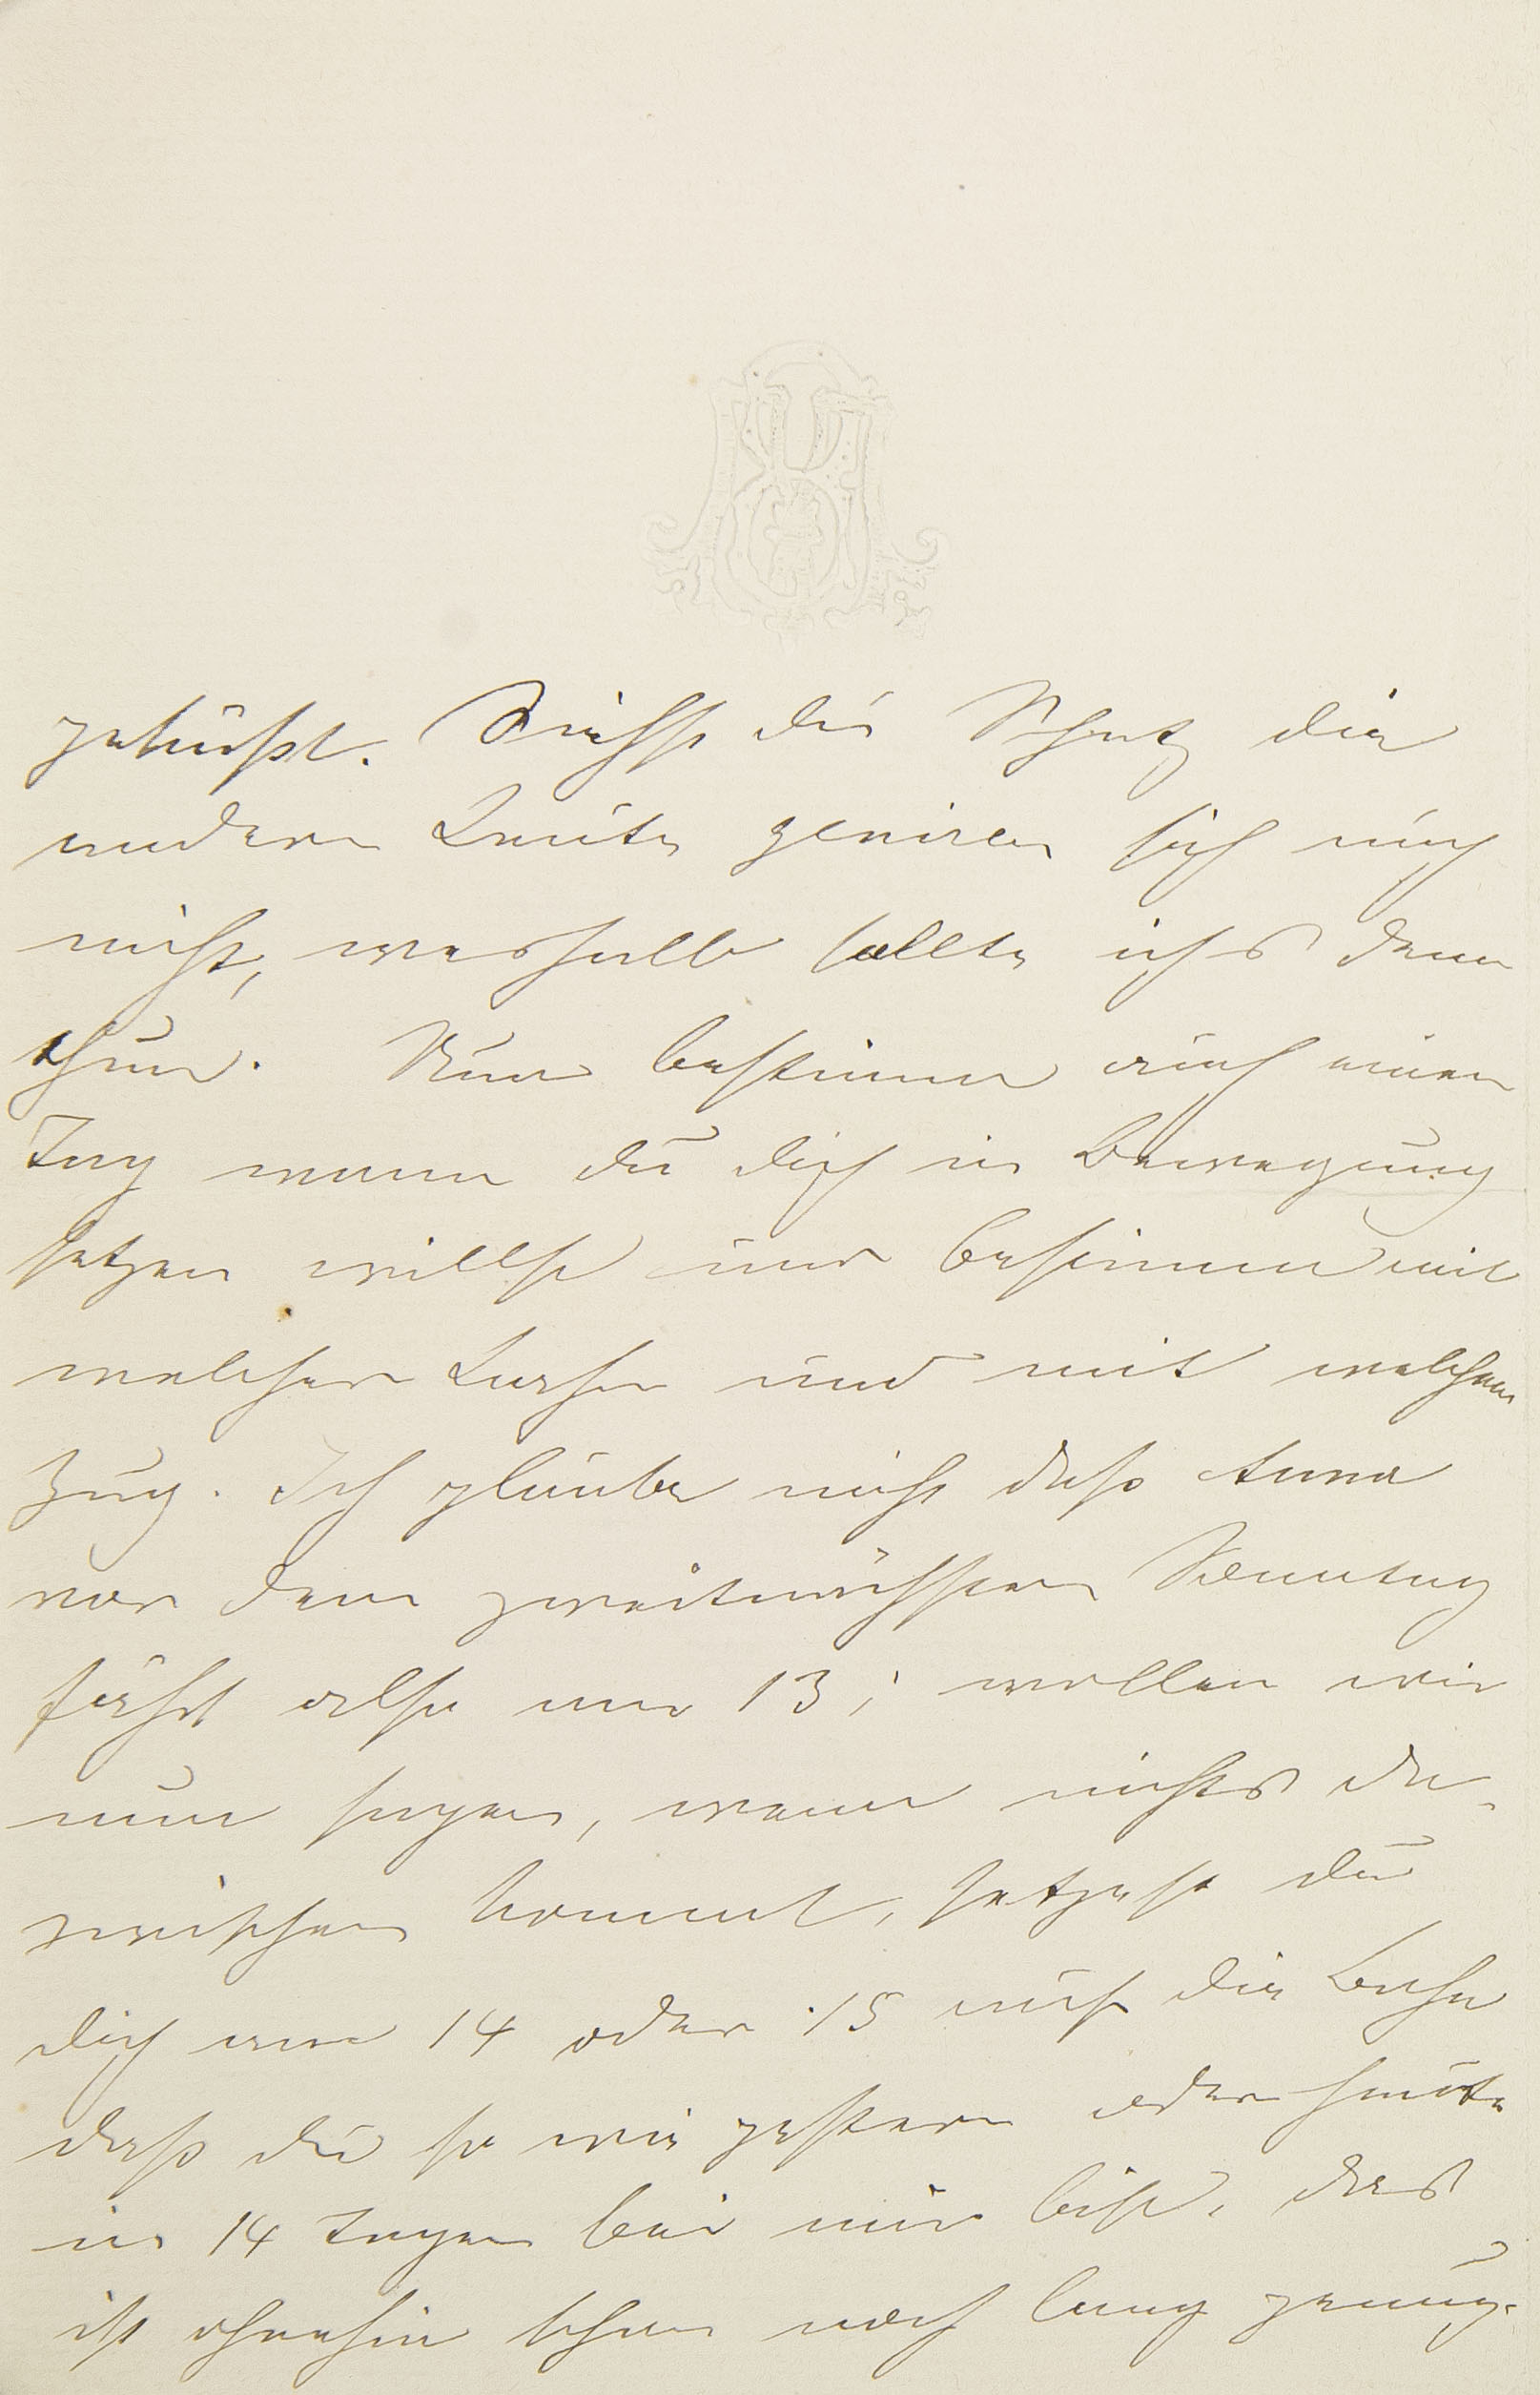 geküßt. Siehst du Schatz die
andern Leute geniren sich auch
nicht, weshalb sollte ichs denn
thun. Nun bestimm auch einen
Tag wann du dich in Bewegung
setzen willst und bestimm mit
welcher und mit welchem
Zug. Ich glaube nicht daß Anna
vor dem zweitnächsten Sonntag
fährt also am 13; wollen wir
nun sagen, wenn nichts da-
zwischen kommt, setzest du
dich am 14 oder 15 auf die Bahn
daß du so wie gestern oder heute
in 14 Tagen bei mir bist, das
ist ohnehin schon noch lang genug.